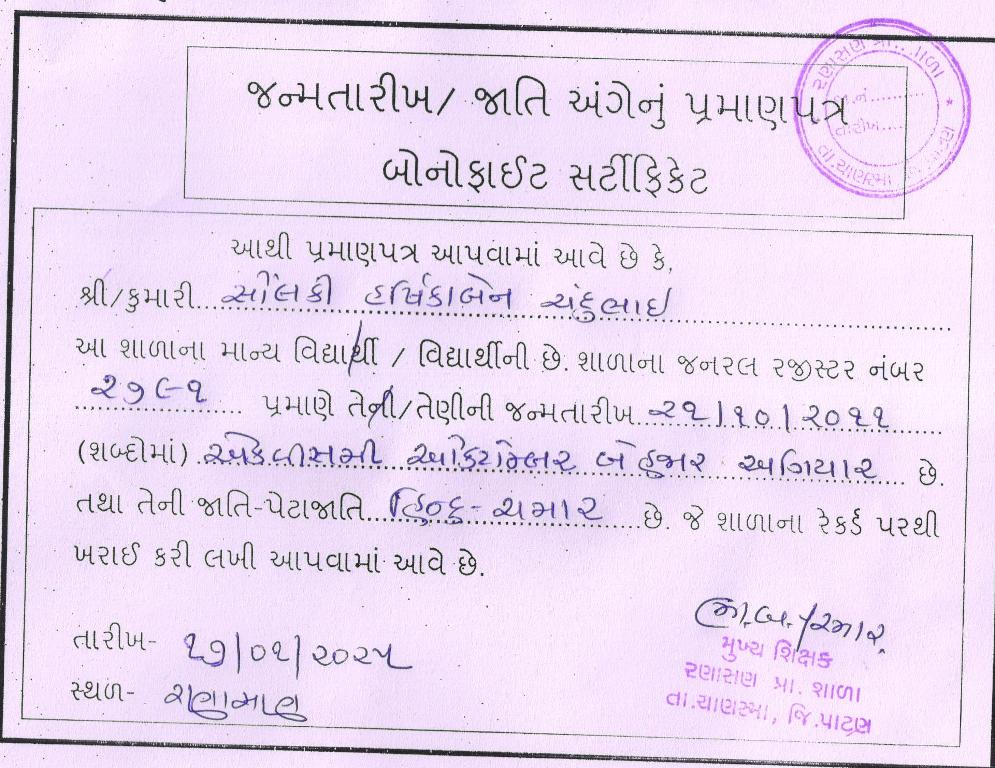 જન્મતારીખ/ જાતિ અંગેનું પ્રમાણપત્ર
બોનોફાઈટ સર્ટીફિકેટ
રણાસણ પ્રા. શાળા
તારીખ....
તા.ચાણસ્મા
આથી પ્રમાણપત્ર આપવામાં આવે છે કે,
શ્રી/કુમારી.. સોલંકી હર્ષિકાબેન ચંદુભાઇ
આ શાળાના માન્ય વિદ્યાર્થી / વિદ્યાર્થીની છે. શાળાના જનરલ રજીસ્ટર નંબર
૨૭૯૧ પ્રમાણે તેની/તેણીની જન્મતારીખ ૨૧/૧૦/૨૦૧૧
(શબ્દોમાં) એકવીસમી ઓક્ટોમ્બર બે હજાર અગિયાર છે.
તથા તેની જાતિ-પેટાજાતિ હિન્દુ - ચમાર છે. જે શાળાના રેકર્ડ પરથી
ખરાઈ કરી લખી આપવામાં આવે છે.
તારીખ- ૧૭/૦૧/૨૦૨૫
સ્થળ- રણાસણ
મુખ્ય શિક્ષક
રણાસણ પ્રા. શાળા
તા.ચાણસ્મા, જિ.પાટણ